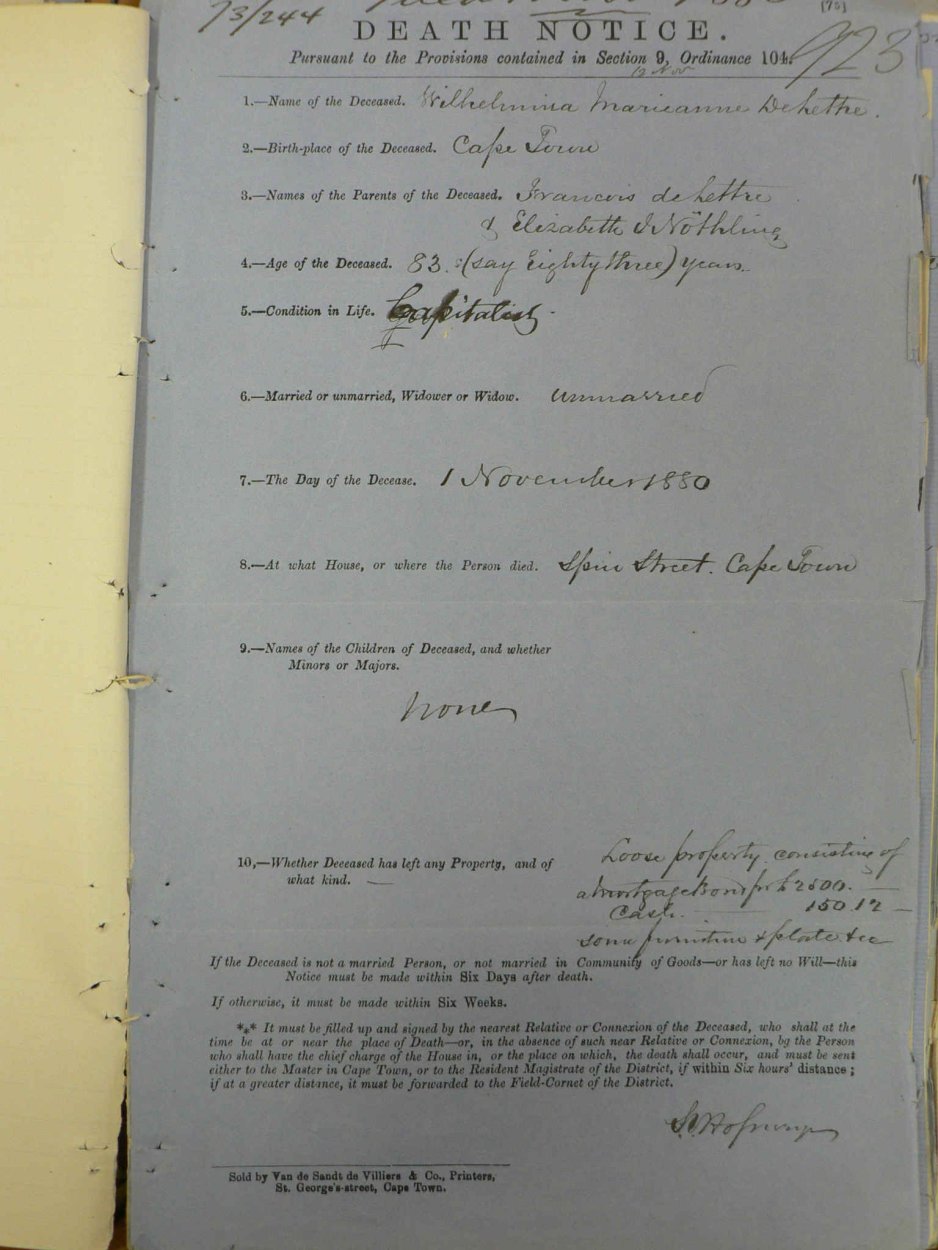 73/244
[78]
DEATH NOTICE.
Pursuant to the Provisions contained in Section 9, Ordinance 104.
12 Nov
923
1.—Name of the Deceased. Wilhelmina Marieanne DeLettre.
2.—Birth-place of the Deceased. Cape Town
3.—Names of the Parents of the Deceased. Francois deLettre
& Elizabeth J Nöthling
4.—Age of the Deceased. 83. (say Eighty three) years.
5.—Condition in Life. Capitalist.
6.—Married or unmarried, Widower or Widow. Unmarried
7.—The Day of the Decease. 1 November 1880
8.—At what House, or where the Person died. Spin Street. Cape Town
9.—Names of the Children of Deceased, and whether
Minors or Majors.
None
10,—Whether Deceased has left any Property, and of
what kind. —
Loose property consisting of
a Mortgage Bond for £2500. —
Cash. — 150.12 —
some furniture & plate &c
If the Deceased is not a married Person, or not married in Community of Goods—or has left no Will—this
Notice must be made within Six Days after death.
If otherwise, it must be made within Six Weeks.
*** It must be filled up and signed by the nearest Relative or Connexion of the Deceased, who shall at the
time be at or near the place of Death—or, in the absence of such near Relative or Connexion, by the Person
who shall have the chief charge of the House in, or the place on which, the death shall occur, and must be sent
either to the Master in Cape Town, or to the Resident Magistrate of the District, if within Six hours' distance;
if at a greater distance, it must be forwarded to the Field-Cornet of the District.
Sold by Van de Sandt de Villiers & Co., Printers,
St. George's-street, Cape Town.